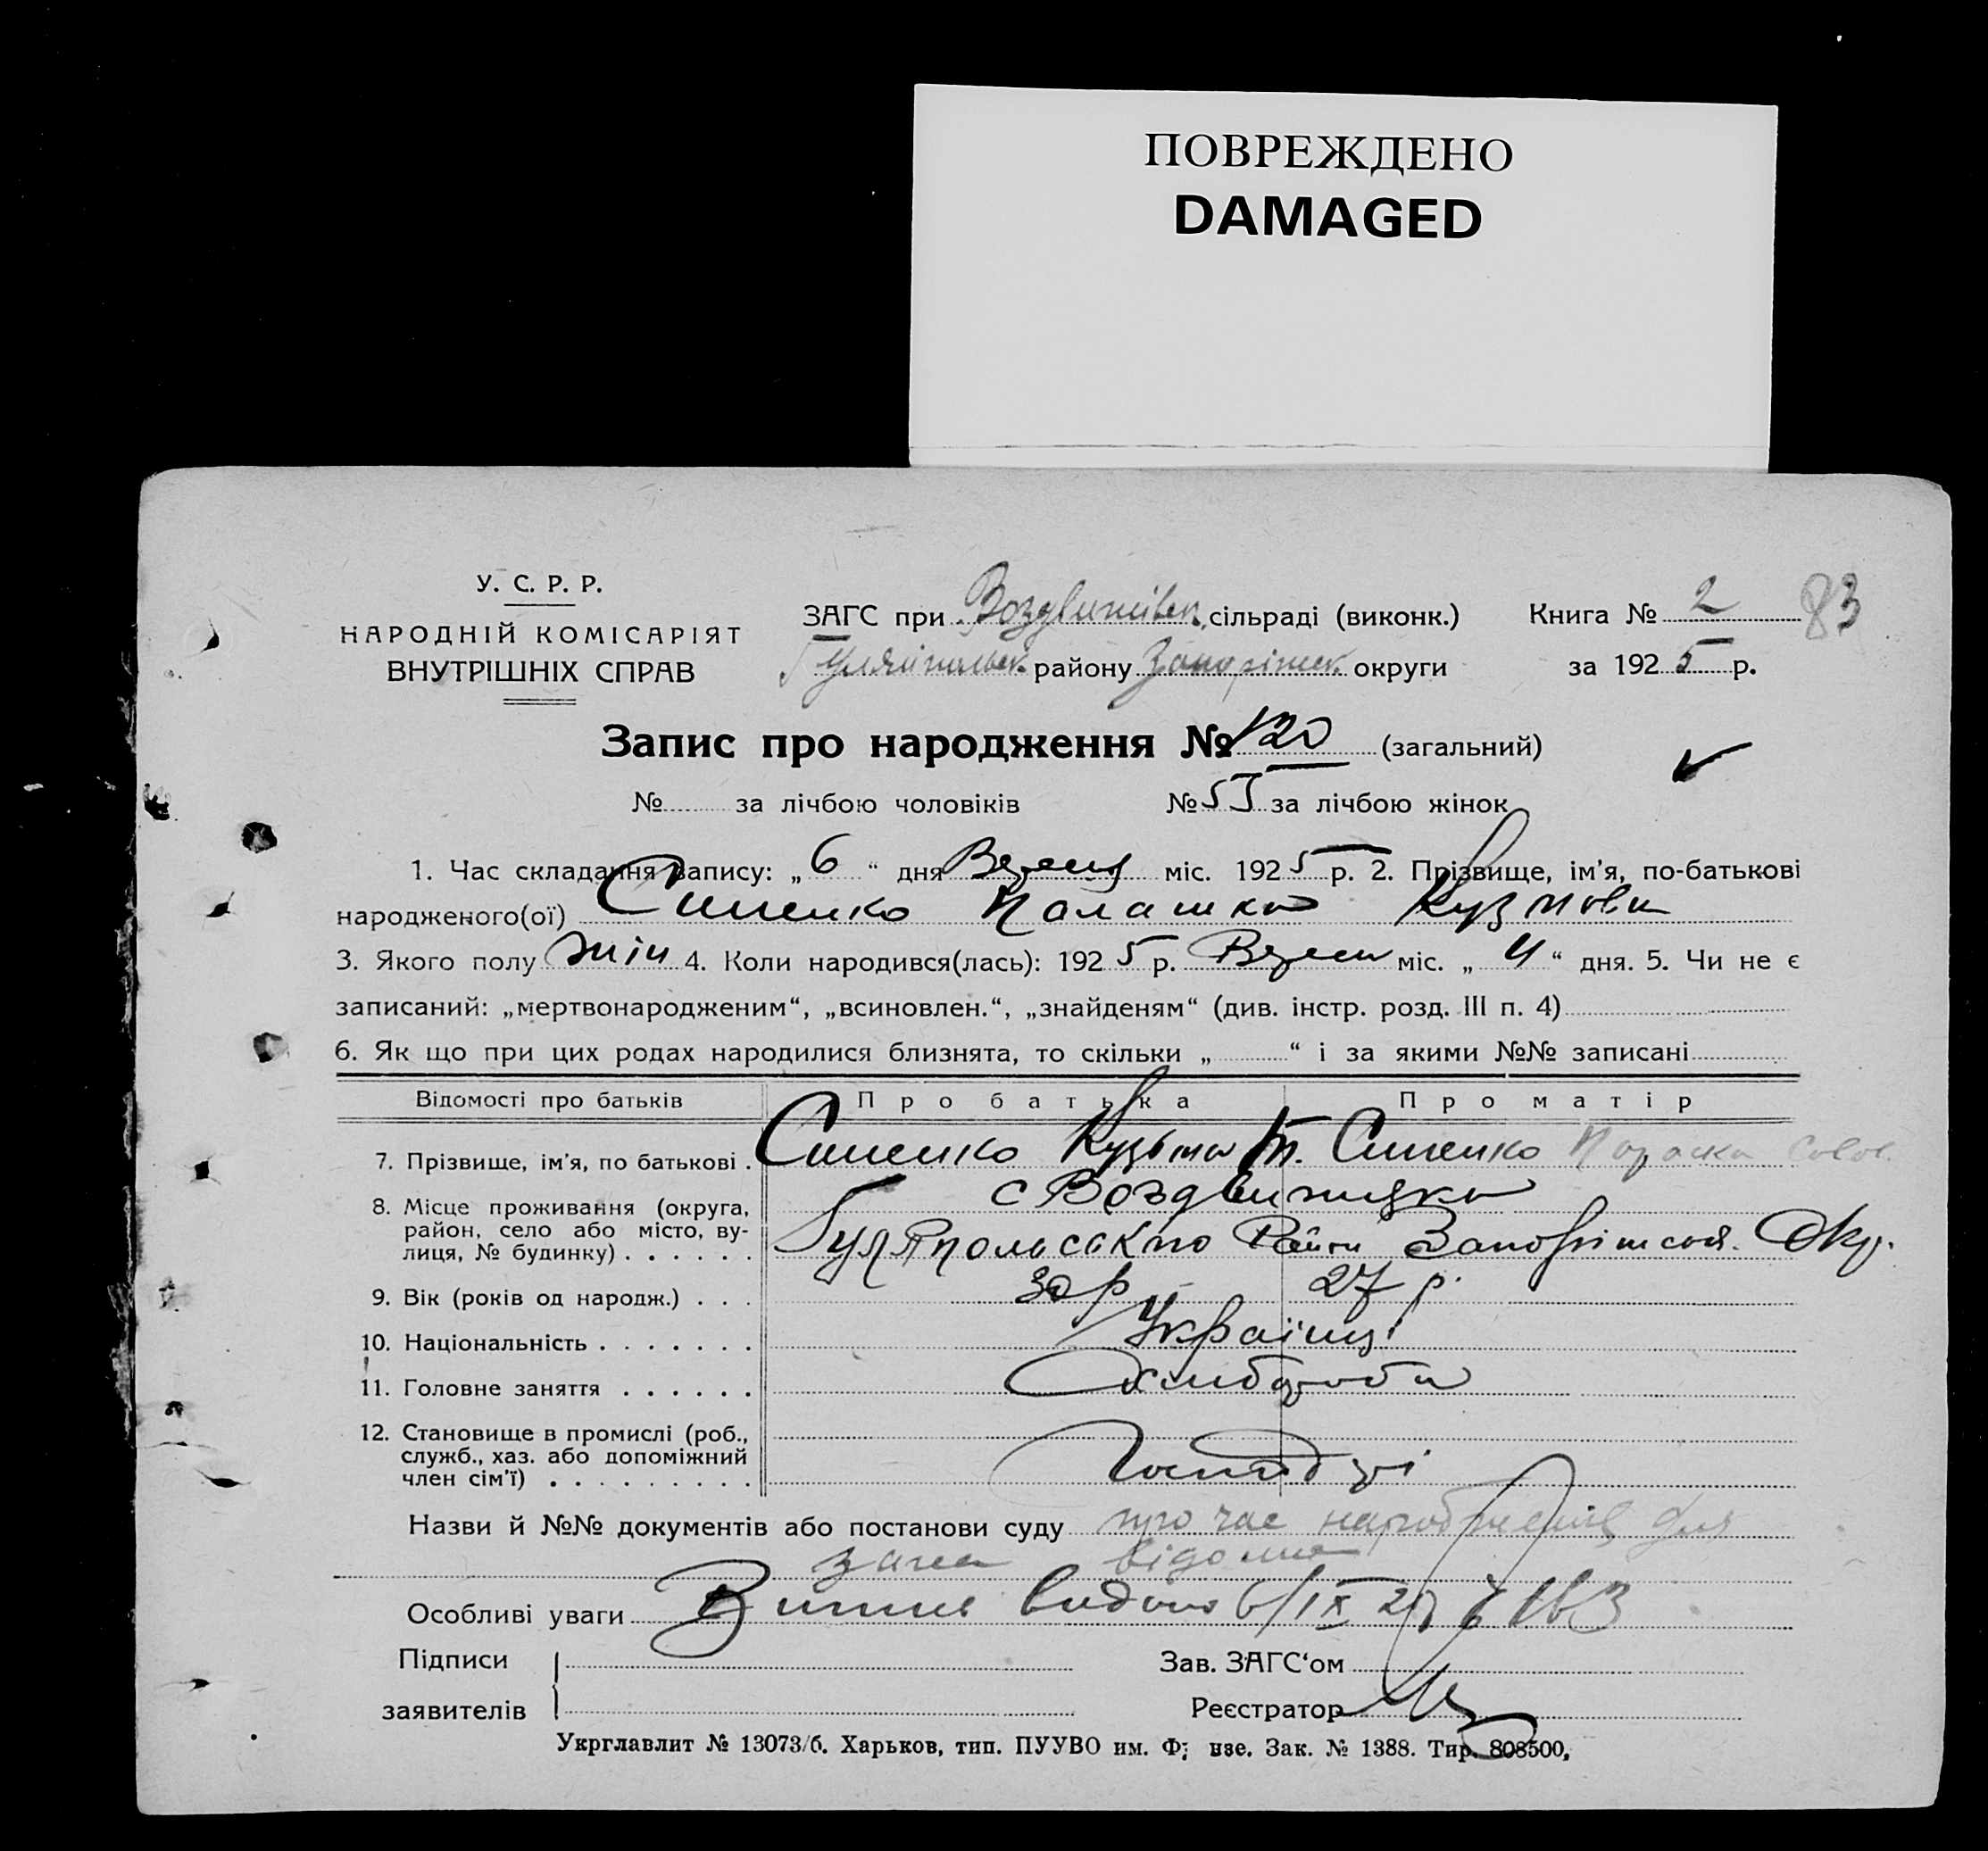 ПОВРЕЖДЕНО
DAMAGED
У. С. Р. Р.
НАРОДНІЙ КОМІСАРІЯТ
ВНУТРІШНІХ СПРАВ
ЗАГС при Воздвижівск. сільраді (виконк.)
Гуляйпольск. району Запоріжск. округи
Книга № 2
83
за 1925 р.
Запис про народження № 120 (загальний)
№ за лічбою чоловіків № 55 за лічбою жінок
1. Час складання запису: „ 6 “ дня міс. 1925 р. 2. Прізвище, ім’я, по-батькові
народженого(ої) Синенко Палашка Кузмовн
3. Якого полу жін 4. Коли народився(лась): 1925 р. міс. „ 4 “ дня. 5. Чи не є
записаний: „мертвонародженим“, „всиновлен.“, „знайденям“ (див. інстр. розд. III п. 4)
6. Як що при цих родах народилися близнята, то скільки „ “ і за якими №№ записані
Відомості про батьків Про батька Про матір
7. Прізвище, ім’я, по батькові . Синенко Кузьма Т. Синенко Параска
8. Місце проживання (округа, район, село або місто, вулиця, № будинку) . . . . . . с Воздвижидка
Гуляпольського Району Запоріжськ. Окр.
9. Вік (років од народж.) . . . 30 р 27 р.
10. Національність . . . . . . . Українці
11. Головне заняття . . . . . . хліброби
12. Становище в промислі (роб., служб., хаз. або допоміжний член сім’ї) . . . . . . . . . Господарі
Назви й №№ документів або постанови суду про час народження для
відома
Особливі уваги Витяг видано 6/IX 25 163
Підписи
заявителів
Зав. ЗАГС‘ом
Реєстратор
Укрглавлит № 13073/б. Харьков, тип. ПУУВО им. Ф; нзе. Зак. № 1388. Тир. 808500,